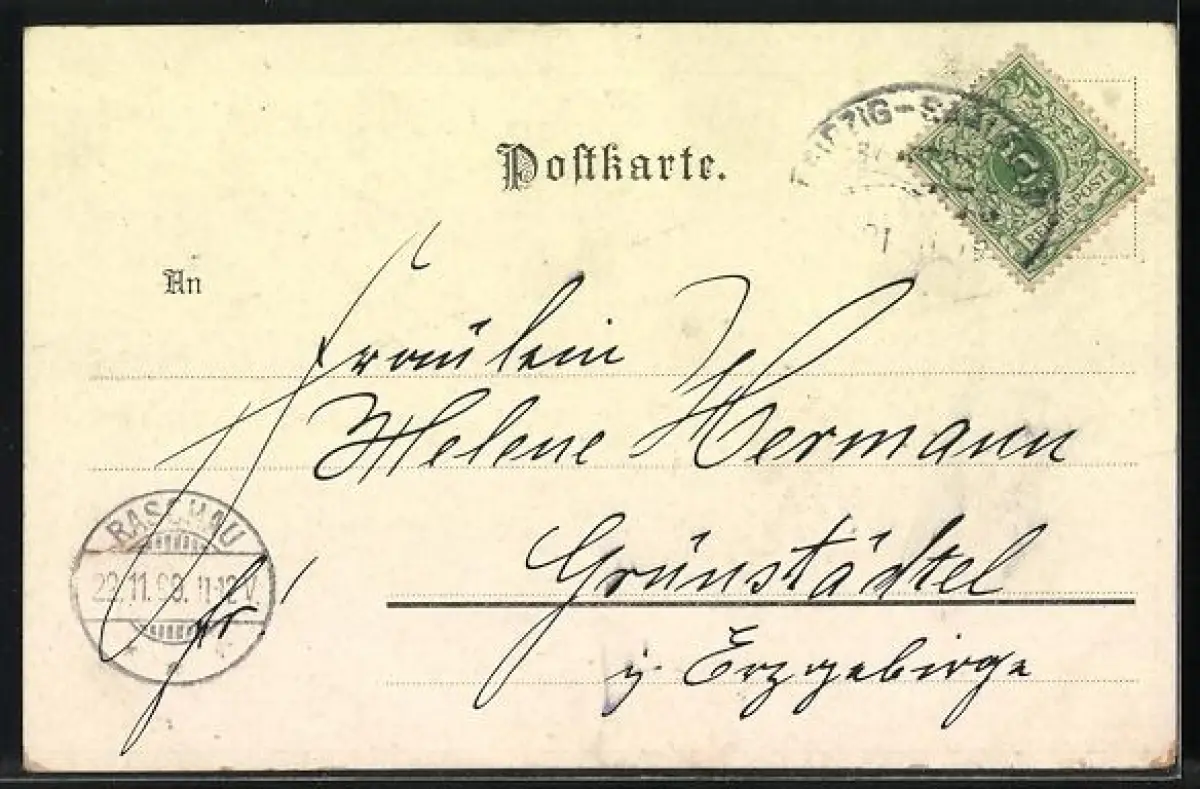 Postkarte.
LEIPZIG-
REICHSPOST
An
Fräulein
Helene Hermann
RASCHAU
22.11.99. 11-12 V.
Grünstädtel
fr!
i/ Erzgebirge